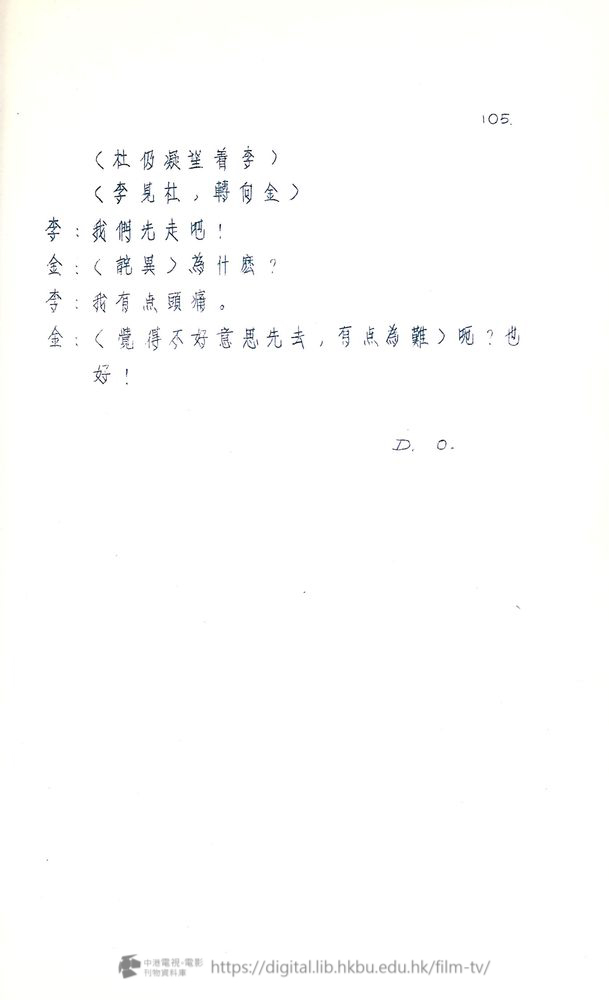 105.
（杜仍凝望着李）
（李見杜，轉向金）
李：我們先走吧！
金：（詫異）為什麼？
李：我有点頭痛。
金：（覺得不好意思先去，有点為難）呃？也
好！
D. O.
中港電視·電影
刊物資料庫
https://digital.lib.hkbu.edu.hk/film-tv/